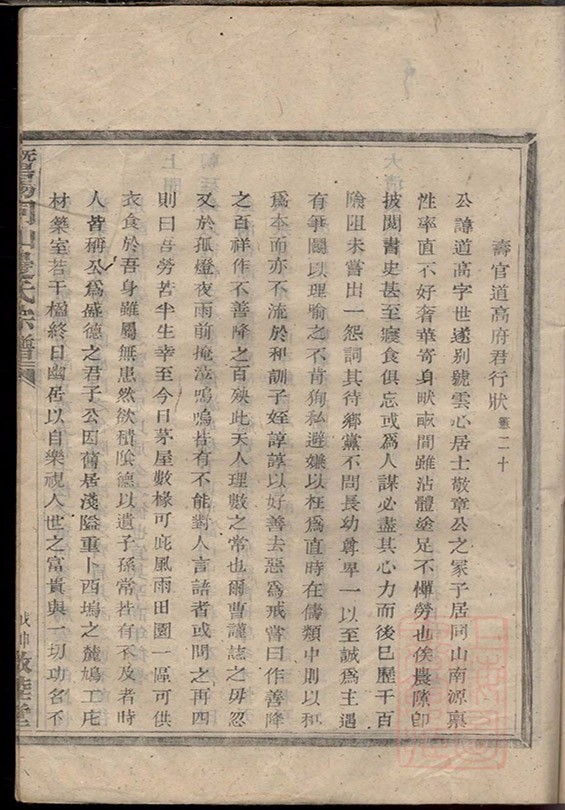 壽官道高府君行狀 憲二十
公諱道高字世遂别號雲心居士敬章公之冢子居同山南源稟
性率直不好奢華寄身畎畝間雖沾體塗足不憚勞也俟農隙卽
披閱書史甚至寢食俱忘或爲人謀必盡其心力而後已歷千百
險阻未嘗出一怨詞其待鄉黨不問長幼尊卑一以至誠爲主遇
有爭鬭以理喻之不肯狥私避嫌以枉爲直時在儔類中則以和
爲本而亦不流於和訓子姪諄諄以好善去惡爲戒嘗曰作善降
之百祥作不善降之百殃此天人理數之常也爾曹謹誌之毋忽
又於孤燈夜雨前掩泣嗚嗚持有不能對人言語者或問之再四
則曰吾勞苦半生幸至今日茅屋數椽可庇風雨田園一區可供
衣食於吾身雖屬無患然欲積陰德以遺子孫常持有不及者時
人皆稱公爲盛德之君子公因舊居淺隘重卜西塢之麓鳩工庀
材築室若干楹終日幽居以自樂視人世之富貴與一切功名不
暨陽同山邊氏宗譜
戊申 敦睦堂